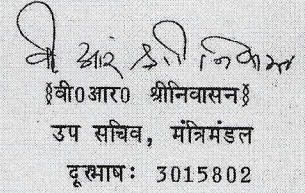 वी आर श्रीनिवासन
§वी0आर0 श्रीनिवासन§
उप सचिव, मंत्रिमंडल
दूरभाषः 3015802